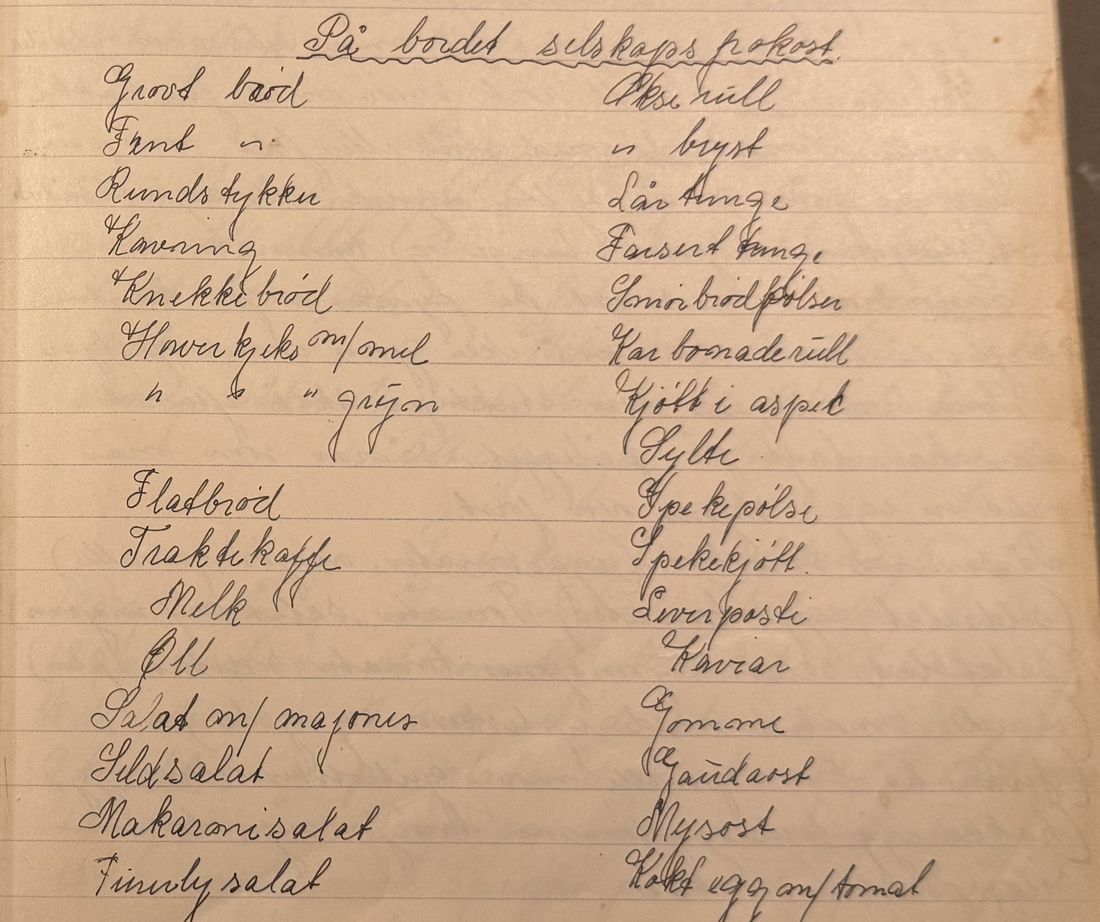 På bordet selskaps frokost.
Grovt brød
Fint "
Rundstykker
Kavring
Knekkebrød
Haverkjeks m/mel
" " " gryn
Flatbrød
Traktekaffe
Melk
Øll
Salat m/ majones
Sildsalat
Makaronisalat
salat
Okserull
" bryst
Lår tunge
Farsert tunge
Smørbrødpølser
Karbonaderull
Kjøtt i aspik
Sylte
Spekepølse
Spekekjøtt.
Leverpostei
Kaviar
Gomme
Gaudaost
Mysost
Kokt egg m/tomat